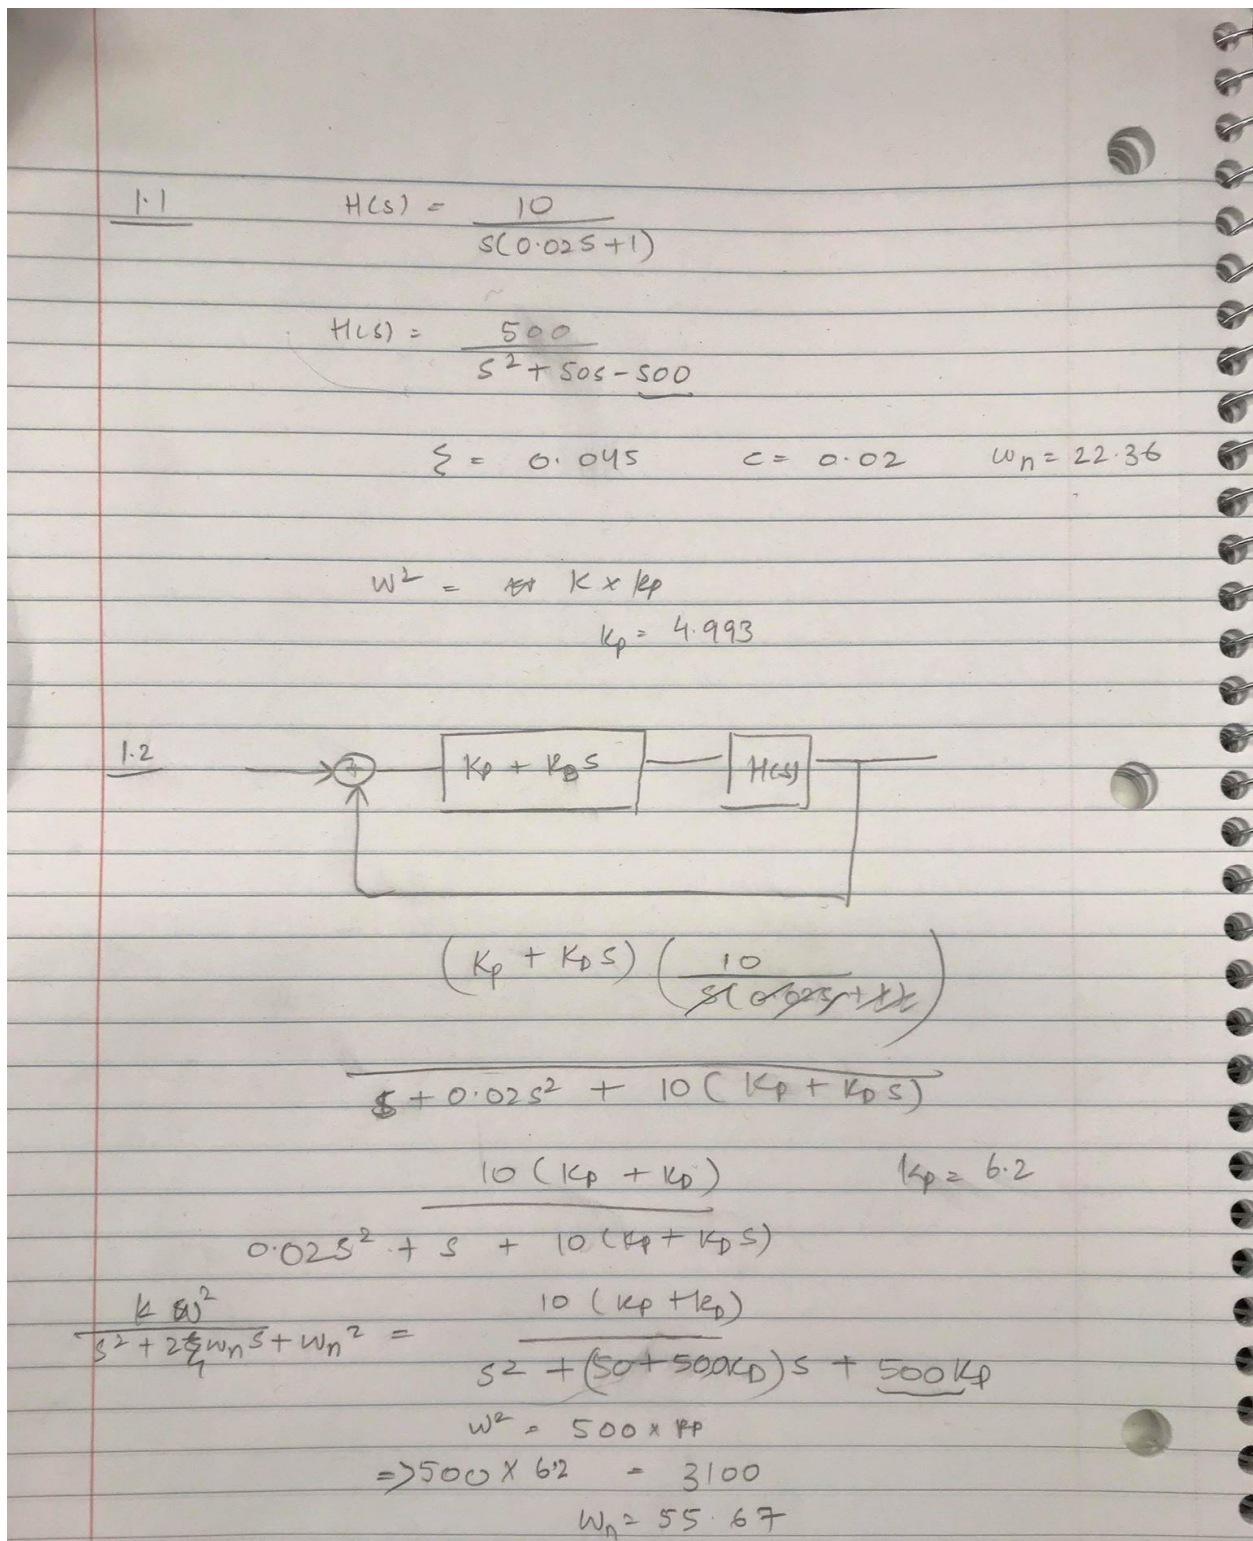 1.1 H(s) = 10 / s(0.02s+1)
H(s) = 500 / s² + 50s - 500
ξ = 0.045 c = 0.02 ωn = 22.36
w² = K x kp
kp = 4.993
1.2 + Kp + KDS H(s)
(Kp + KDS) (10 / s(0.02s+1))
s + 0.02s² + 10(Kp + KDS)
10(Kp + KD) kp = 6.2
0.02s² + s + 10(Kp + KDS)
k ω² / s² + 2ξωns + ωn² = 10(kp + kD) / s² + (50+500KD)s + 500Kp
w² = 500 x kp
=> 500 x 6.2 = 3100
Wn = 55.67